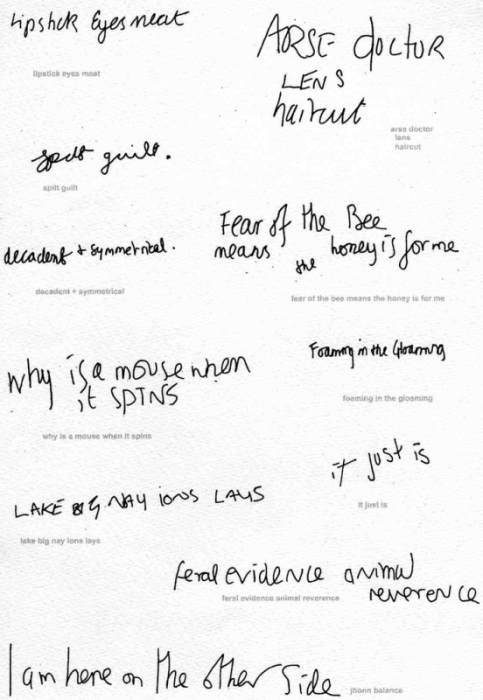 lipstick Eyes meat
lipstick eyes meat
ARSE doctor
LENS
haircut
arse doctor
lens
haircut
spilt guilt.
spilt guilt
Fear of the Bee
means the honey is for me
fear of the bee means the honey is for me
decadent + symmetrical.
decadent + symmetrical
Foaming in the Gloaming
foaming in the gloaming
why is a mouse when
it SPINS
why is a mouse when it spins
it just is
it just is
LAKE BIG NAY ions LAYS
lake big nay ions lays
feral evidence animal
reverence
feral evidence animal reverence
I am here on The other Side
jhonn balance